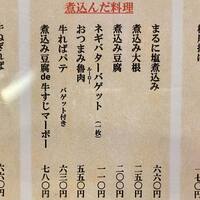 煮込んだ料理
まるに塩煮込み 六六〇円
煮込み大根 二五〇円
煮込み豆腐 二〇〇円
ネギバターバゲット(二枚) 一一〇円
おつまみ魯肉 五五〇円
牛ればパテ バゲット付き 六三〇円
煮込み豆腐de牛すじマーボー 七八〇円